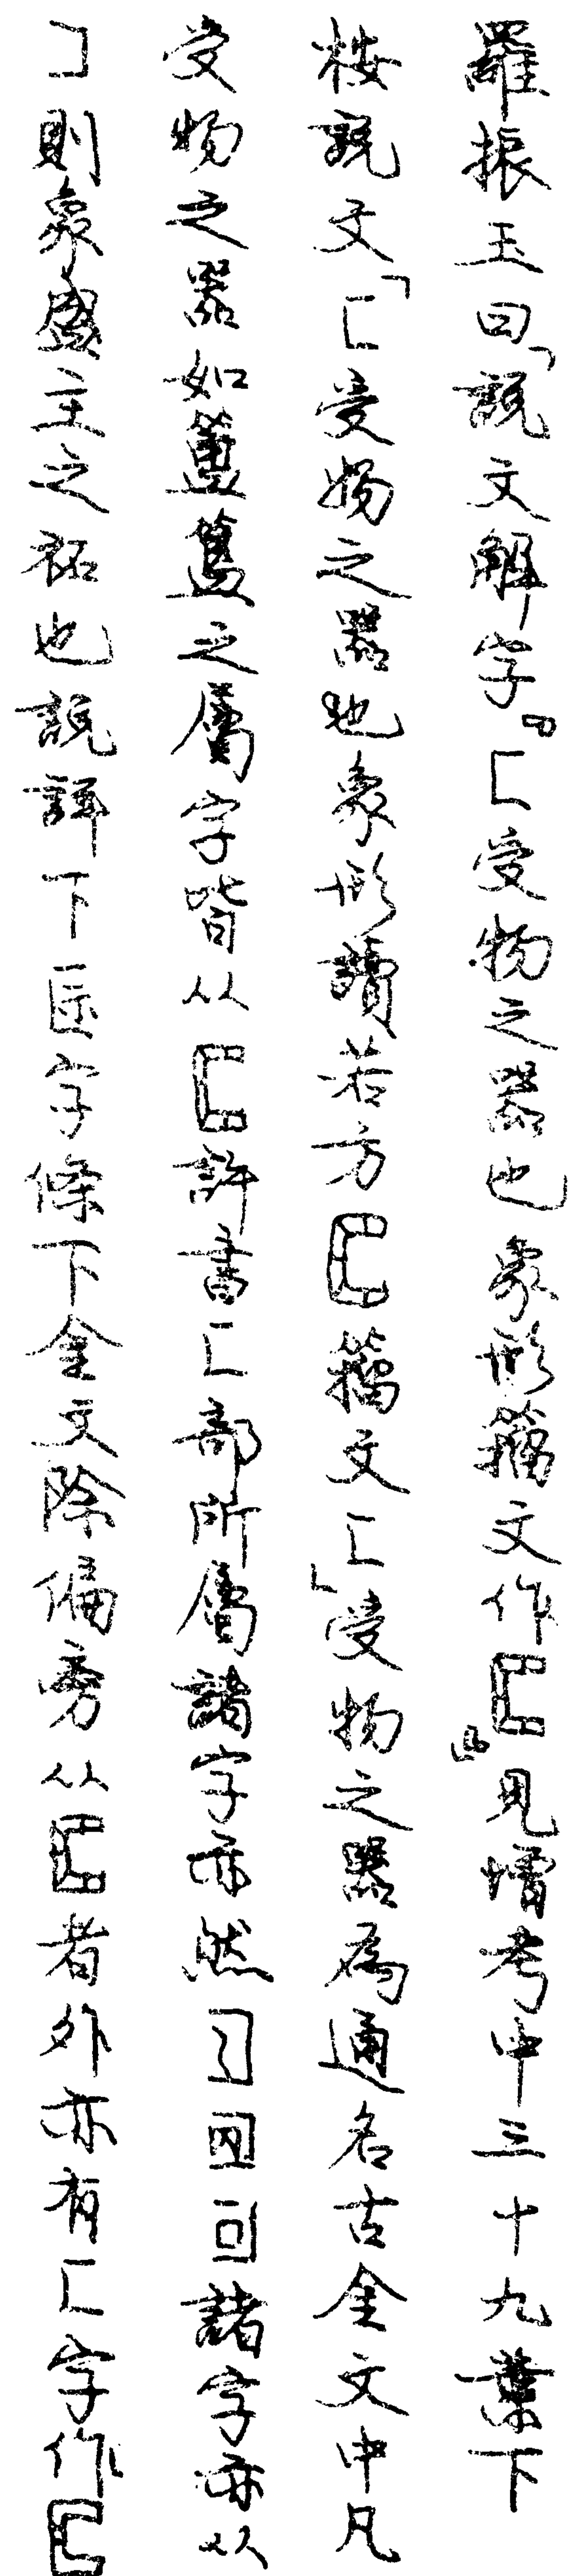 羅振玉曰「說文解字『匚受物之器也象形籀文作𠥓』見增考中三十九葉下
桉說文「匚受物之器也象形讀若方𠥓籀文匚」受物之器為通名古金文中凡
受物之器如簠簋之屬字皆从𠥓許書匚部所屬諸字亦然諸字亦从
𠃍則象盛主之祏也說詳下匠字條下金文除偏旁从𠥓者外亦有匚字作𠥓